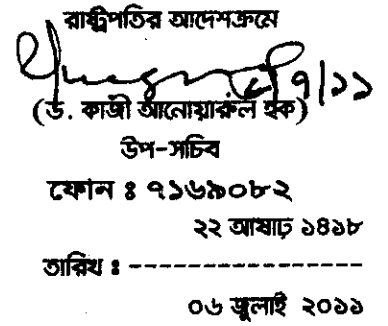 রাষ্ট্রপতির আদেশক্রমে
৭/১১
(ড. কাজী আনোয়ারুল হক)
উপ-সচিব
ফোন ঃ ৭১৬৯০৮২
২২ আষাঢ় ১৪১৮
তারিখ ঃ ----------------
০৬ জুলাই ২০১১